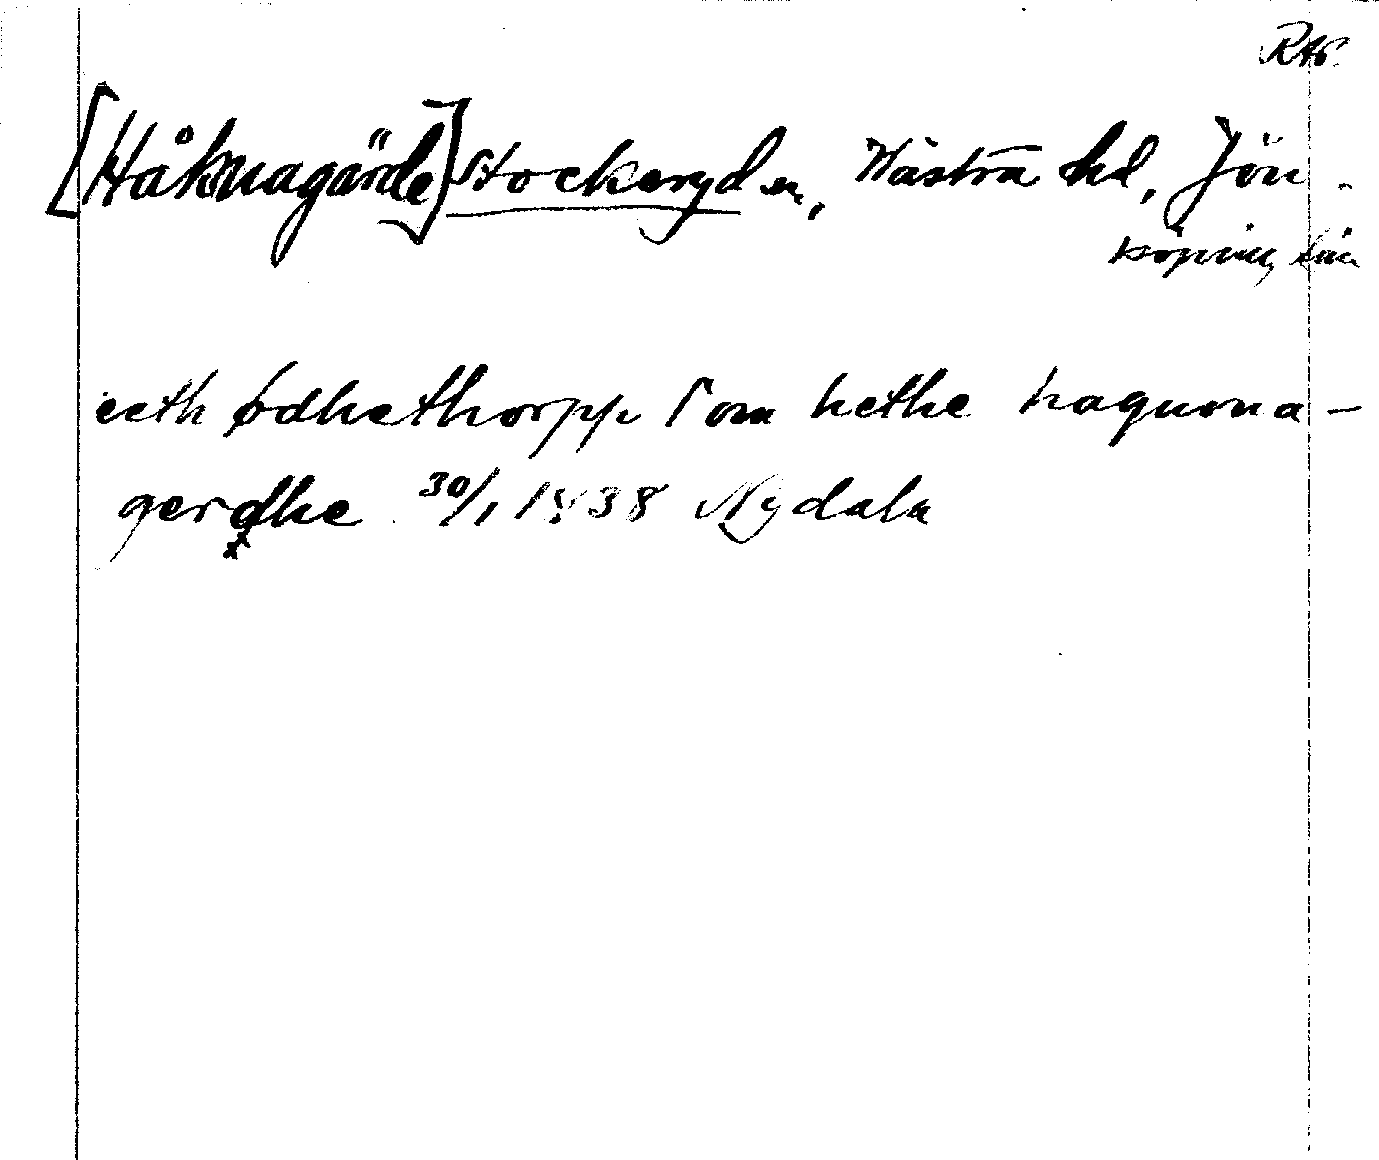 RAp.
[Håknagärde] Stockeryd sn, Västra hd, Jön-
köpings län
eeth ødhethorpp som hethe haquona-
gerdhe 30/1 1438 Nydala